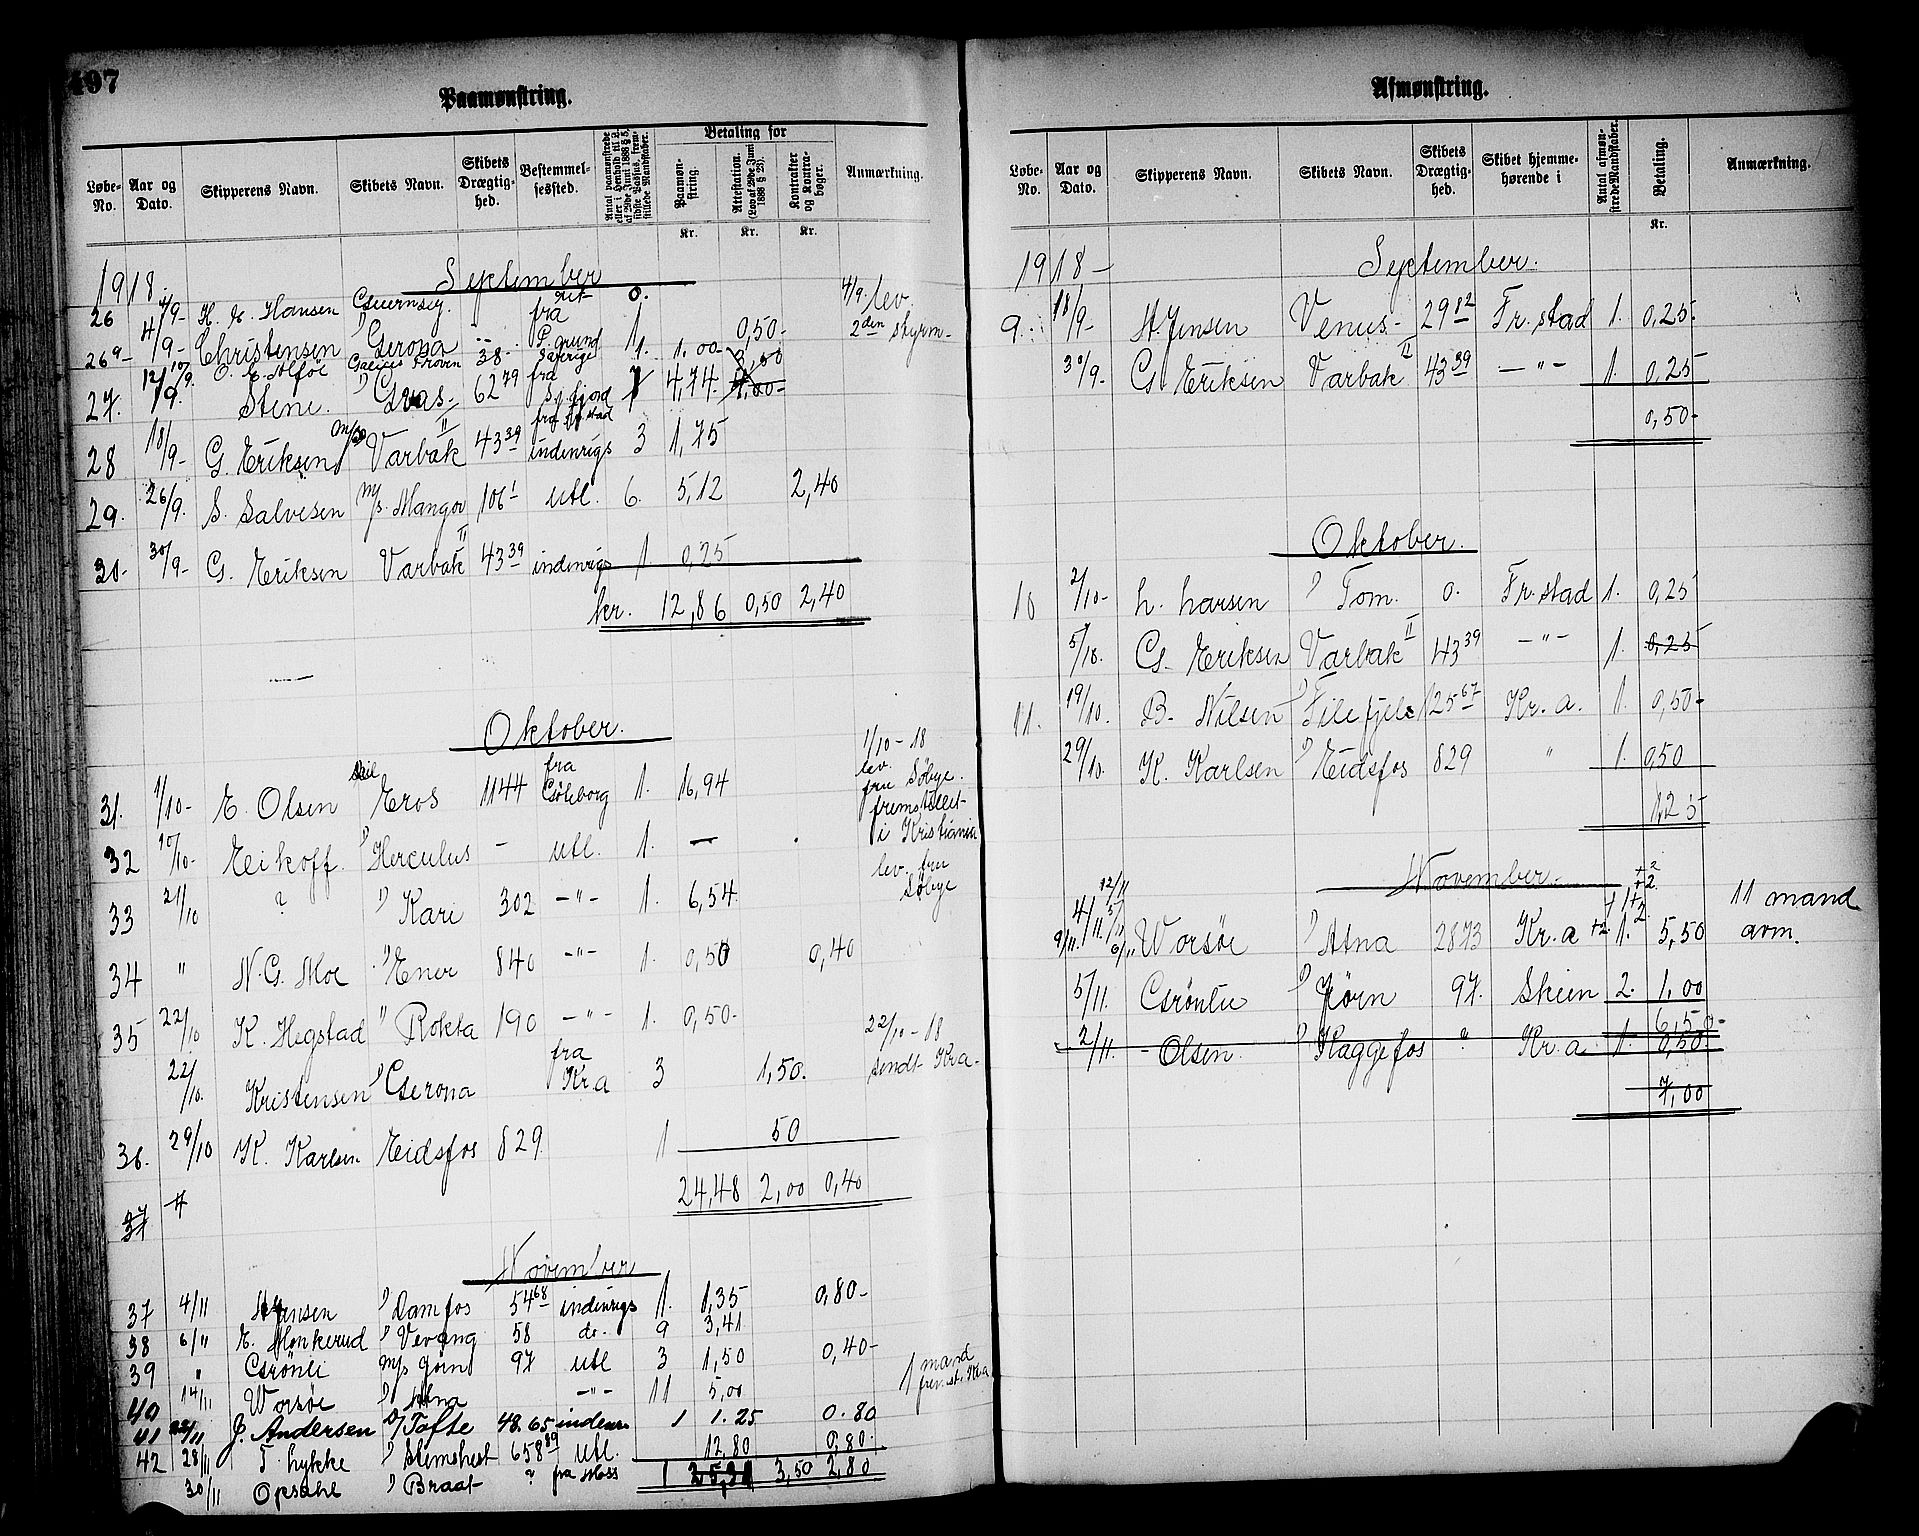 197
Paamønstring.
Løbe-No. Aar og Dato. Skipperens Navn. Skibets Navn. Skibets Drægtighed. Bestemmelsessted. Betaling for Paamønstring. Kr. Attestation. (Lov af 29de Juni 1888 § 23). Kr. Kontrakter og Kontrabøger. Kr. Anmærkning.
1918. September
26 4/9- H. E. Hansen Guernsey. fra 0. 4/9. lev.
26 a- 4/9- Christensen Gerona - - 1. 0,50- 2den skyrm-
O. E. Alføe 38- Sverige 1. 1.00-
27. 12/9. Stene. Gras- 62 79 fra 4,74
28 18/9- G. Eriksen Varbak II 43 39 indenrigs 3 1,75
29. 26/9. S. Salvesen M/s. Mangor 106 1 utl. 6. 5,12 2,40
30- 30/9- G. Eriksen Varbak II 43 39 indenrigs 1. 0,25
kr. 12,86 0,50 2,40
Oktober.
31. 1/10- E. Olsen Eros 1144 fra Gøteborg 1. 16,94 1/10-18 lev. fru Søbye. fremstillet i Kristiania
32 10/10- Eeikoff. Herculus - utl. 1. - lev. fru Søbye
33 21/10 ? Kari 302 -"- 1. 6,54
34 " N. G. Moe Ener 840 -"- 1. 0,50 0,40
35 22/10 K. Hegstad " Rokta 190 -"- 1. 0,50-
22/10. Kristensen Gerona fra Kr.a 3 1,50. 22/10-18 sendt Kra-
36. 29/10 K. Karlsen Eidsfos 829 1 50
24,48 2,00 0,40
37
November
37 4/11 H. Jensen Damfos 54 68 indenrigs 1. 1,35 0,80-
38 6/11 E. Monkerud Vevang 58 do. 9 3,41
39 " Grönli M/s Jörn 97 utl 3 1,50 0,40-
40 14/11 Worsöe Atna -"- 11 5,00 1 mand frem.st. i Kra
41 22/11 J. Andersen Tofte 48.65 indenr. 1 1.25 0.80
42 28/11 T. Lykke Slemshest 658 89 utl. 12,80 0,80.
30/11 Opsahl Braat ? fra Moss 1 25,31 3,50 2,80
Afmønstring.
Løbe-No. Aar og Dato. Skipperens Navn. Skibets Navn. Skibets Drægtighed. Skibet hjemmehørende i Antal afmønstrede Mandskaber. Betaling. Kr. Anmærkning.
1918- September.
9. 18/9- H. Jensen Venus- 29 82 Fr.stad 1. 0,25-
30/9- G. Eriksen Varbak II 43 39 -"- 1. 0,25
0,50-
Oktober.
10 2/10- L. Larsen Tom. 0. Fr.stad 1. 0,25
5/10. G. Eriksen Varbak II 43 39 -"- 1. 0,25
11. 19/10. B. Nilsen Filefjeld 125 67 Kr.a. 1. 0,50-
29/10. K. Karlsen Eidsfos 829 " 1. 0,50
1,25
November-
4/11. 5/11 12/11 9/11. 6/11 Worsöe Atna 2873 Kr.a +2 1. +2. 5,50 11 mand avm.
5/11. Grönlie Jörn 97. Skien 2. 1,00
6,50-
2/11. - Olsen. Haggefos " Kr.a 1. 0,50
7,00